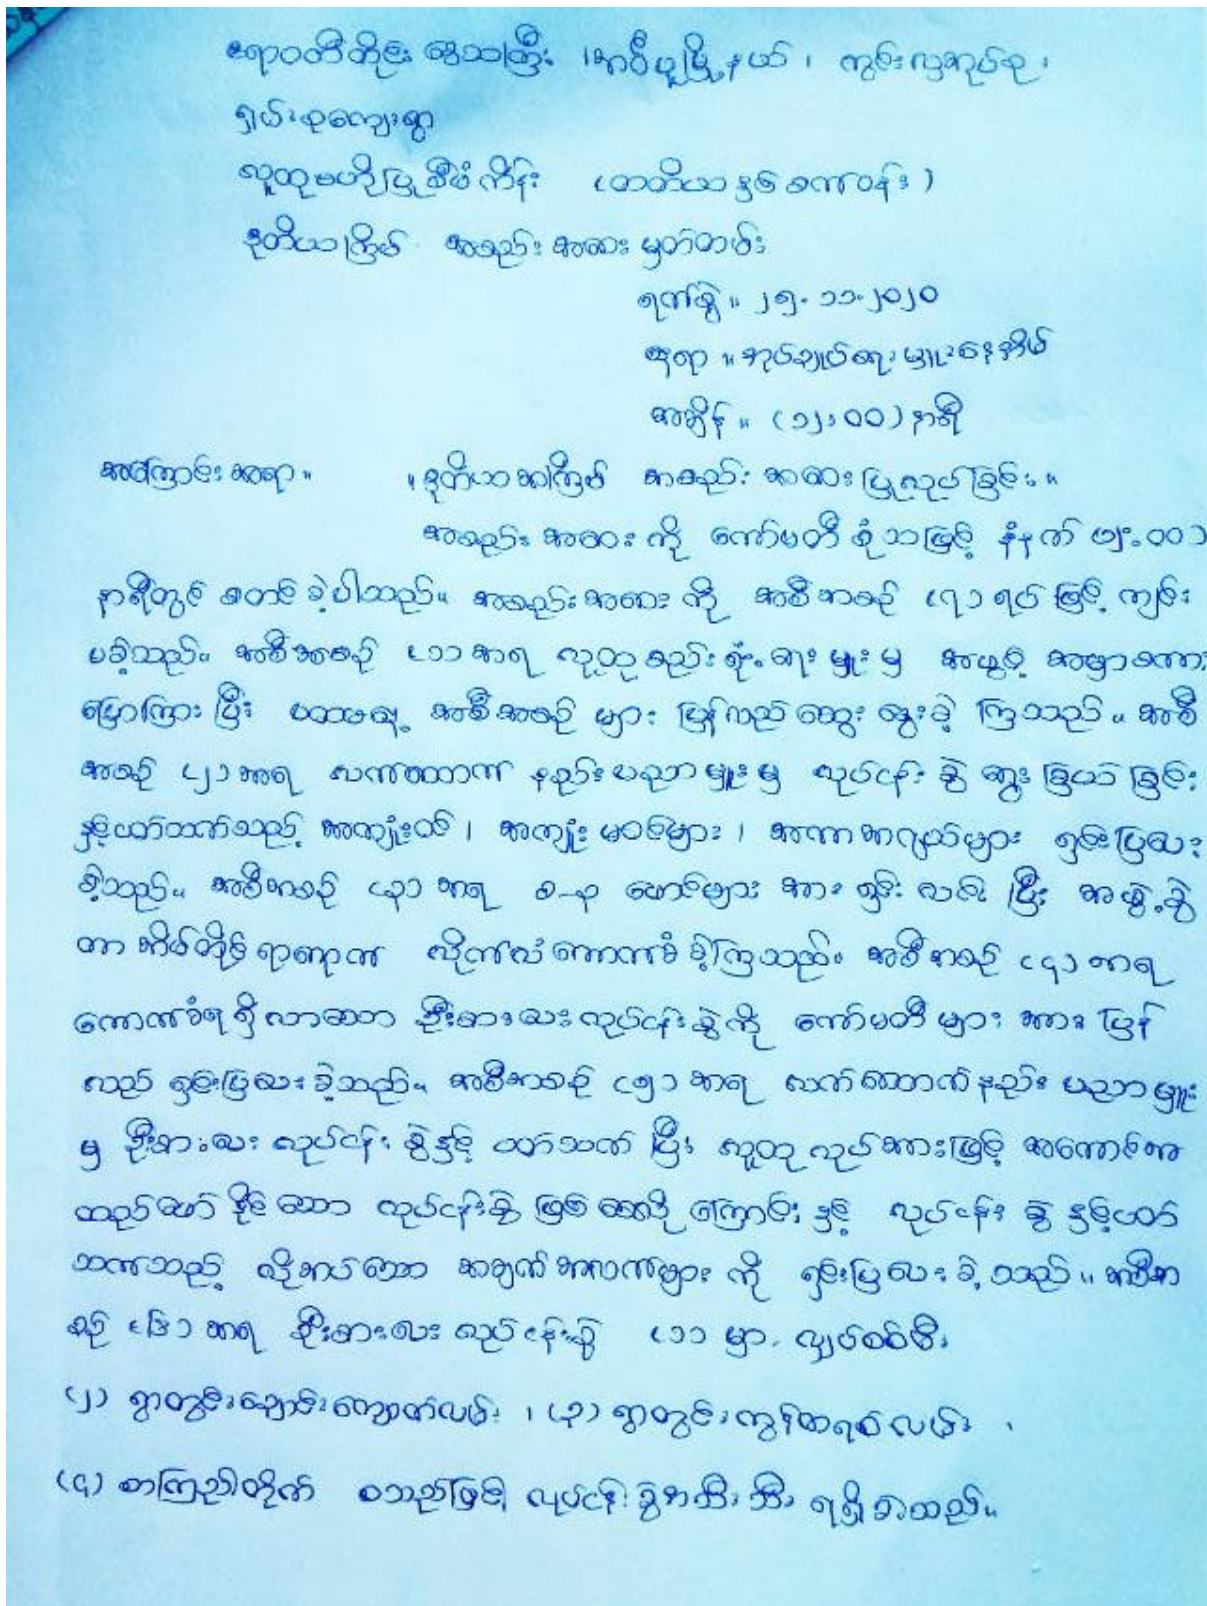 ဧရာဝတီတိုင်း ဒေသကြီး ၊ အင်္ဂပူမြို့နယ် ၊ ကွင်းလှအုပ်စု ၊
ရှမ်းစုကျေးရွာ
လူထုဗဟိုပြုစီမံကိန်း (တတိယနှစ်စက်ဝန်း)
ဒုတိယကြိမ် အစည်းအဝေး မှတ်တမ်း
ရက်စွဲ။ ၂၅.၁၁.၂၀၂၀
နေရာ ။ အုပ်ချုပ်ရေးမှူးနေအိမ်
အချိန်။ (၁၂:၀၀) နာရီ
အကြောင်းအရာ။ ။ ဒုတိယအကြိမ် အစည်းအဝေးပြုလုပ်ခြင်း။
အစည်းအဝေးကို ကော်မတီစုံသဖြင့် နံနက် ၁၂:၀၀)
နာရီတွင် စတင်ခဲ့ပါသည်။ အစည်းအဝေးကို အစီအစဉ် (၇) ရပ်ဖြင့် ကျင်း
ပခဲ့သည်။ အစီအစဉ် (၁) အရ လူထုစည်းရုံးရေးမှူးမှ အဖွင့် အမှာစကား
ပြောကြားပြီး ပထမနေ့ အစီအစဉ်များ ပြန်လည်ဆွေးနွေးခဲ့ကြသည်။ အစီ
အစဉ် (၂) အရ လက်ထောက် နည်းပညာမှူးမှ လုပ်ငန်းခွဲ ရွေးခြယ်ခြင်း
နှင့်ပတ်သက်သည့် အကျုံးဝင် ၊ အကျုံးမဝင်များ ၊ အကာအကွယ်များ ရှင်းပြပေး
ခဲ့သည်။ အစီအစဉ် (၃) အရ စ-န ဖောင်များအား ရှင်းလင်းပြီး အဖွဲ့ခွဲ
ကာ အိမ်တိုင်ရာရောက် လိုက်လံကောက်ခံခဲ့ကြသည်။ အစီအစဉ် (၄) အရ
ကောက်ခံရရှိလာသော ဦးစားပေးလုပ်ငန်းခွဲကို ကော်မတီများအား ပြန်
လည် ရှင်းပြပေးခဲ့သည်။ အစီအစဉ် (၅) အရ လက်ထောက်နည်းပညာမှူး
မှ ဦးစားပေး လုပ်ငန်းခွဲနှင့် ပတ်သက်ပြီး လူထုလုပ်အားဖြင့် အကောင်အ
ထည်ဖော်နိုင်သော လုပ်ငန်းခွဲ ဖြစ်စေလိုကြောင်းနှင့် လုပ်ငန်းခွဲနှင့်ပတ်
သက်သည့် လိုအပ်သော အချက်အလက်များကို ရှင်းပြပေးခဲ့သည်။ အစီအ
စဉ် (၆) အရ ဦးစားပေးလုပ်ငန်းခွဲ (၁) မှာ လျှပ်စစ်မီး
(၂) ရွာတွင်းချောင်းကျောက်လမ်း ၊ (၃) ရွာတွင်းကွန်ကရစ်လမ်း ၊
(၄) စာကြည့်တိုက် စသည်ဖြင့် လုပ်ငန်းခွဲအသီးသီး ရရှိခဲ့သည်။